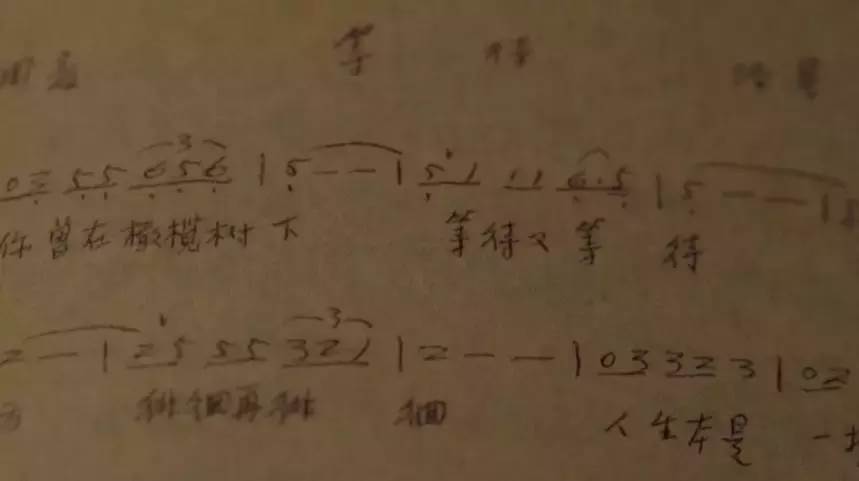 等待
0 2 5 5 6 5 6 | 5 - - | 5 1 1 1 6·5 | 5 - - - |
你曾在橄榄树下 等待又等待
2 - | 2 5 5 5 3 2 1 | 2 - - | 0 3 3 2 3 | 0 2
徘徊再徘徊 人生本是 一